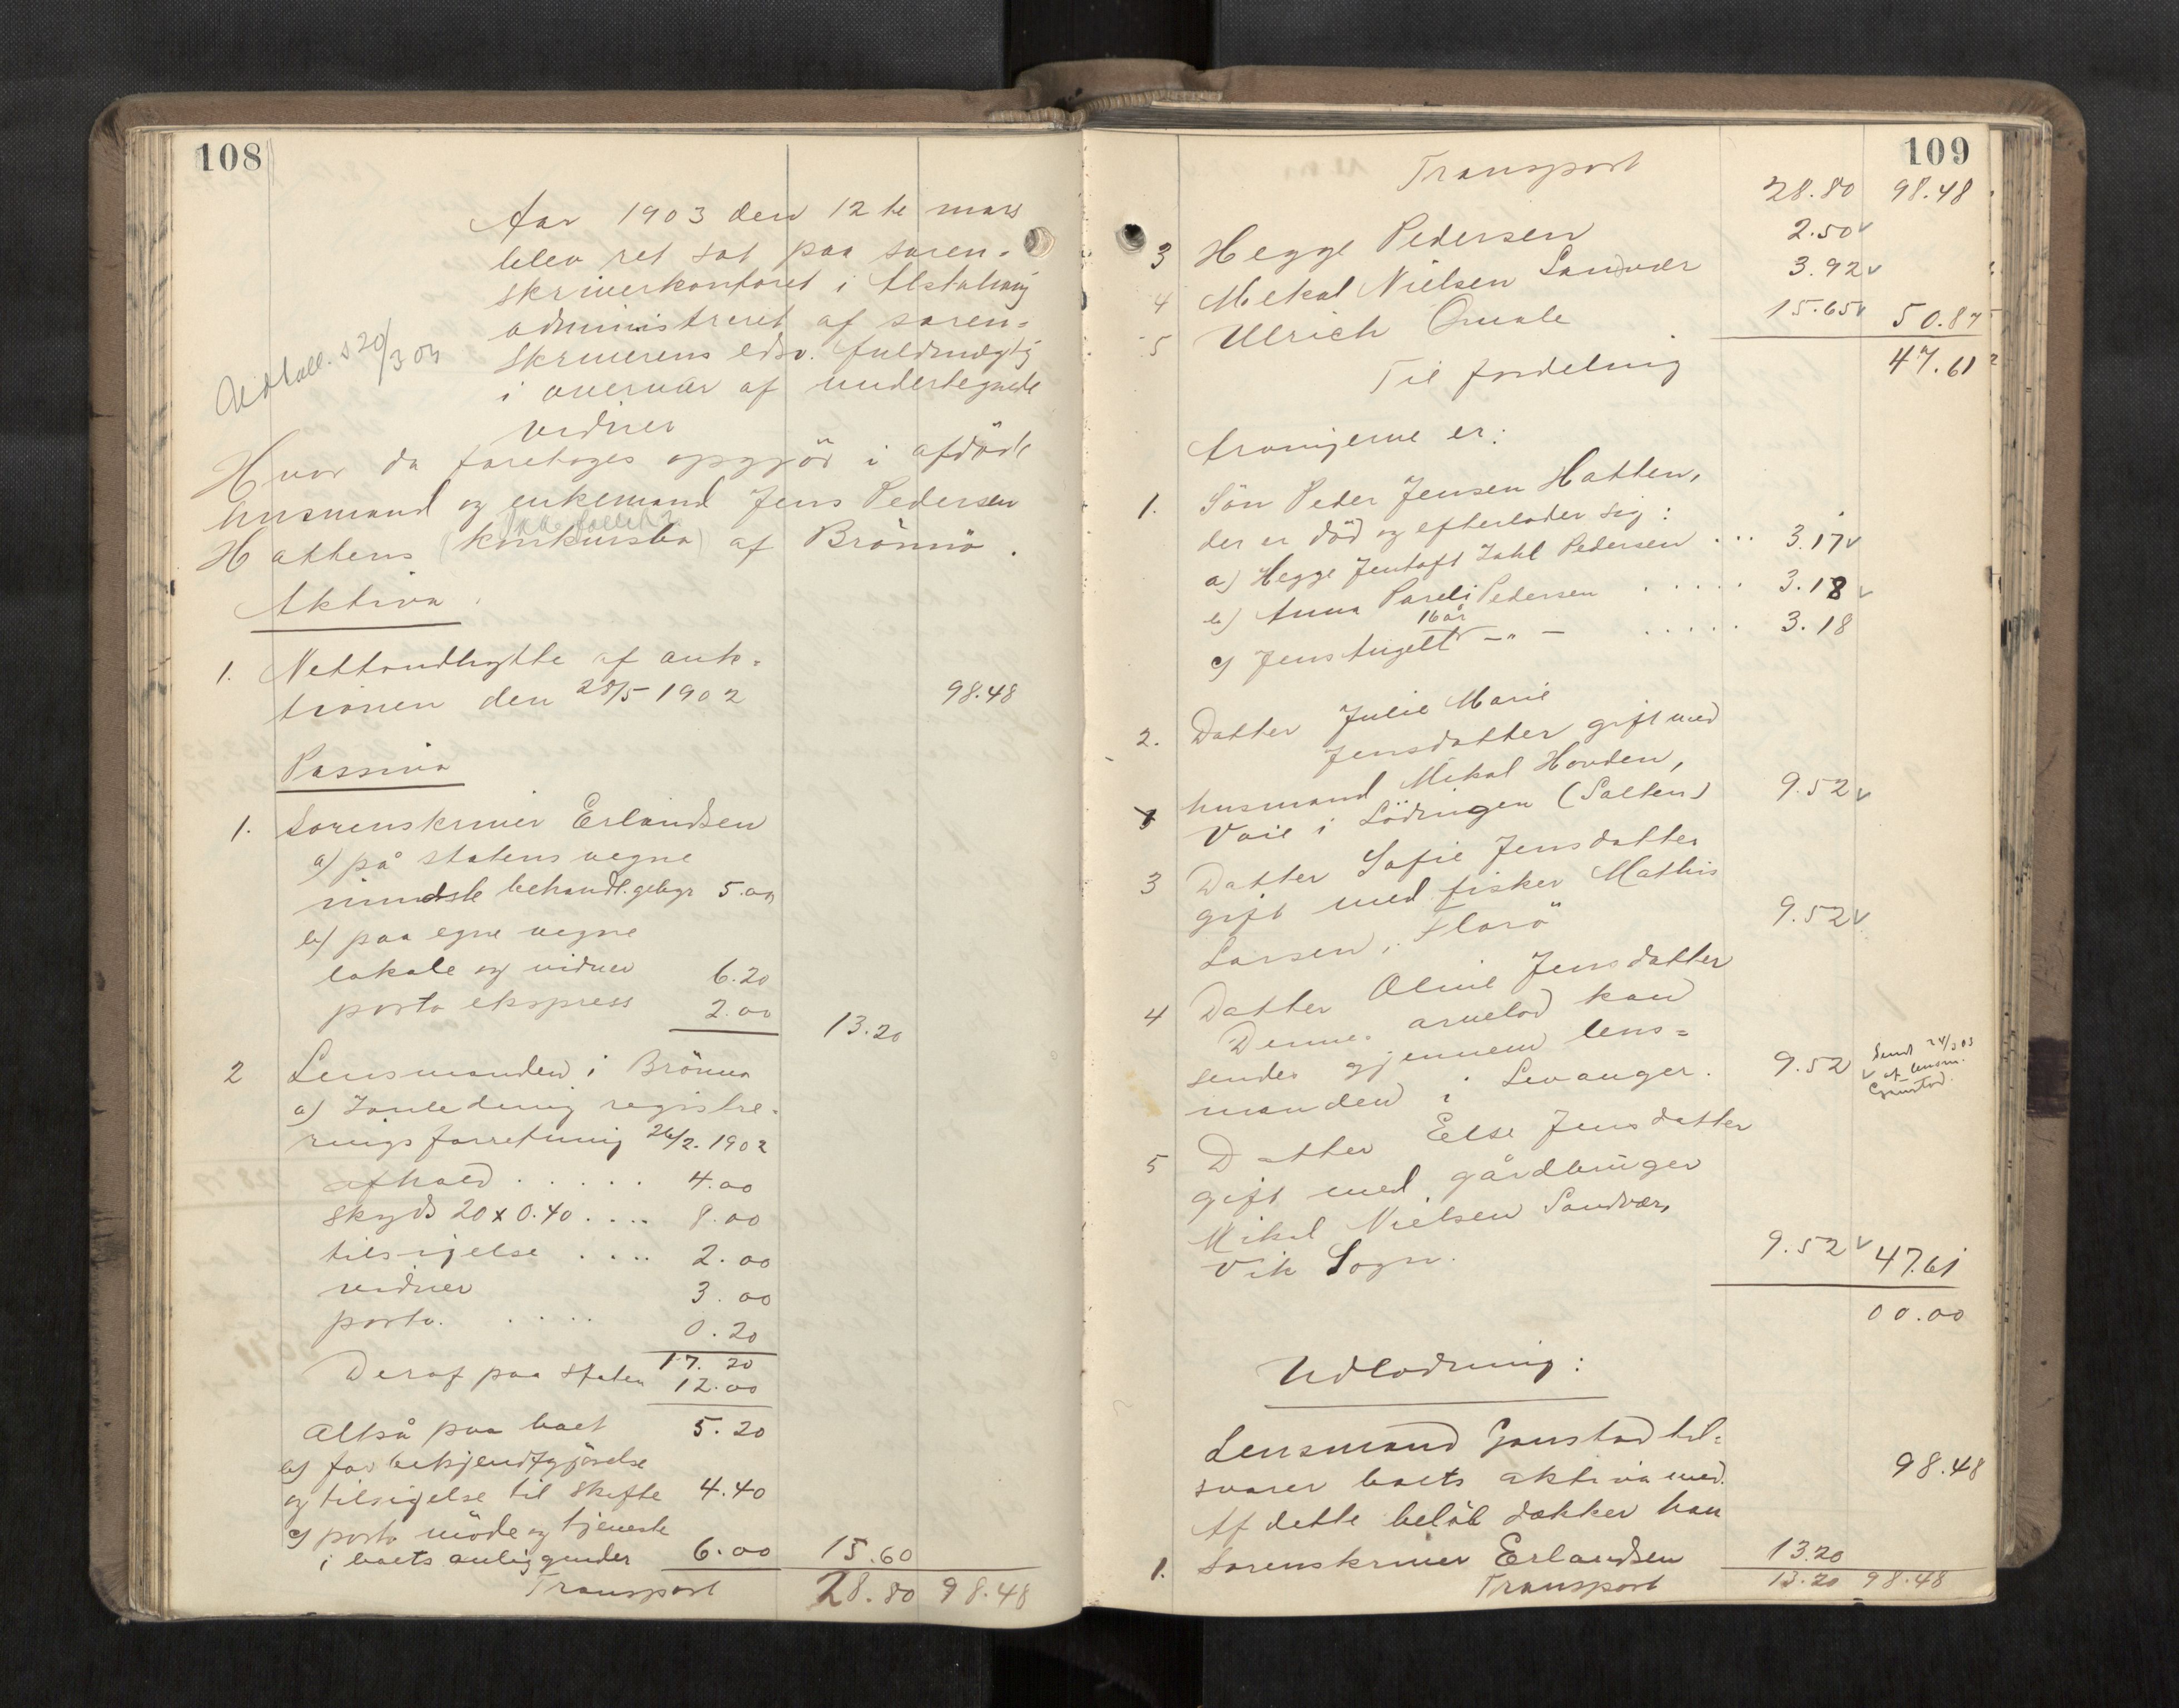 108
Aar 1903 den 12te mars
blev ret sat paa soren-
skriverkontoret i Alstahaug
administreret af soren-
skriverens edsv. fuldmægtig
i overvær af undertegnede
vidner
20/3 03
Hvor da foretoges opgjör i afdöde
husmand og enkemand Jens Pedersen
Hattens (konkursbo) af Brönnö.
Aktiva
1. Nettoudbytte af auk-
tionen den 28/5 1902 98.48
Passiva
1. Sorenskriver Erlandsen
a) på statens vegne
mindste behandl.gebyr 5.00
b) paa egne vegne
lokale og vidner 6.20
porto ekspress 2.00 13.20
2 Lensmanden i Brönnö
a) Indledning registre-
ringsforretning 26/2.1902
afhold ..... 4.00
skyds 20 x 0.40 .... 8.00
tilsigelse .... 2.00
vidner 3.00
porto. .... 0.20
17.20
Deraf paa staten 12.00
Altså paa boet 5.20
b) for bekjendtgjörelse
og tilsigelse til skifte 4.40
c) porto möde og tjeneste
i boets anliggender 6.00 15.60
Transport 28.80 98.48
109
Transport 28.80 98.48
3 Hegge Pedersen 2.50
4 Mekal Nielsen Sandvær 3.92
5 Ulrich Quale 15.65 50.87
Til fordeling 47.61
Arvingerne er:
1. Sön Peder Jensen Hatten,
der er död og efterlader sig:
a) Hegge Jentoft Dahl Pedersen ... 3.17
b) Anna Pareli Pedersen ..... 3.18
16 år
c) Jens Angell -"- ..... 3.18
2. Datter Julie Marie
Jensdatter gift med
husmand Mikal Hovden,
Vaie i Lödingen (Salten) 9.52
3 Datter Sofie Jensdatter
gift med fisker Mathis
Larsen, Florö 9.52
4 Datter Oline Jensdatter
Dennes arvelod kan
sendes gjennem lens-
manden i Levanger. 9.52
Sendt
af lensm.
Gaustad
5 Datter Else Jensdatter
gift med gårdbruger
Mikal Nielsen Sandvær,
Vik Sogn. 9.52 47.61
00.00
Udlodning:
Lensmand Gaustad til-
svarer boets aktiva med. 98.48
Af dette belöb dækker han
1. Sorenskriver Erlandsen 13.20
Transport 13.20 98.48